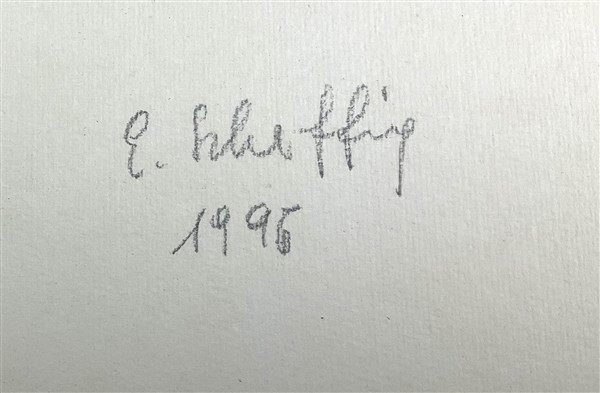 E. Scheffig
1995